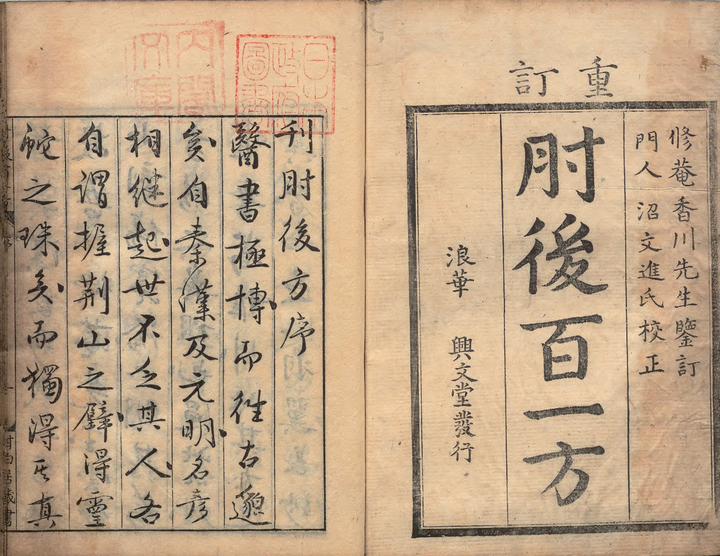 重訂
修菴香川先生鑒訂
門人 沼文進氏校正
肘後百一方
浪華 興文堂發行
刊肘後方序
醫書極博而往古邈
矣自秦漢及元明名彥
相繼起世不乏其人各
自謂握荆山之璧得靈
蛇之珠矣而獨得其真
日本政府圖書
內閣文庫